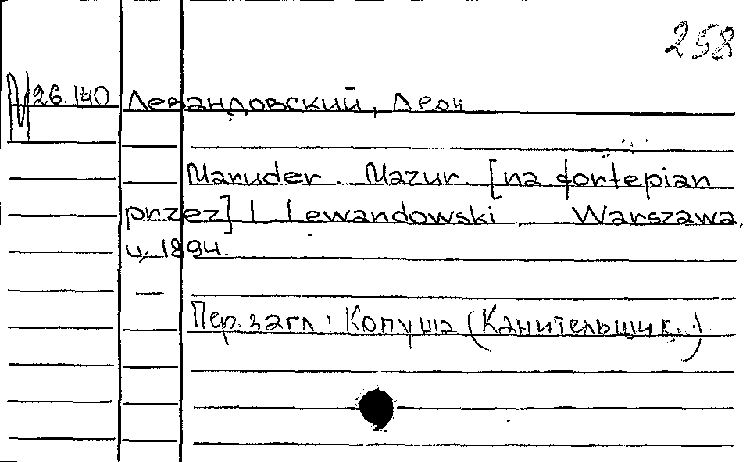 258
М 26.140 Левандовский, Леон
Maruder. Mazur. [na fortepian
przez] L Lewandowski. Warszawa,
ц, 1894.
Пер. загл: Копуша (Канительщик.)